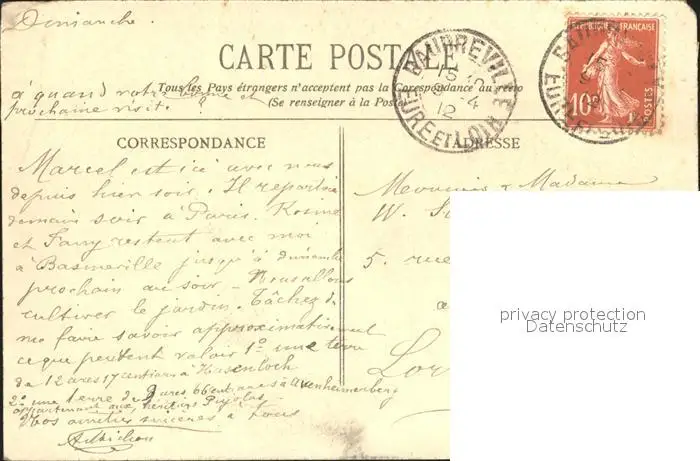 Dimanche.
CARTE POSTALE
Tous les Pays étrangers n'acceptent pas la Correspondance au recto
(Se renseigner à la Poste)
à quand votre bonne et
prochaine visite ?
BAUDREVILLE
15
4
12
EURE ET LOIR
RÉPUBLIQUE FRANÇAISE
10
POSTES
CORRESPONDANCE
ADRESSE
Marcel est ici avec nous
depuis hier soir. Il repartira
demain soir à Paris.
et Fanny restent avec moi
à jusqu'à dimanche
prochain au soir - Nous allons
cultiver le jardin. Tâchez de
me faire savoir approximativement
ce que peuvent valoir 1º une terre
de 12 ares 17 centiares à
2º une terre de ares 66 centiares à
appartenant aux héritiers
Vos amitiés sincères à tous
Monsieur & Madame
W.
5. rue
a
Lor
privacy protection
Datenschutz